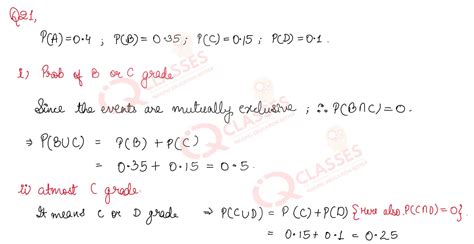 Q21,
P(A)=0.4 ; P(B)=0.35; P(C)=0.15 ; P(D)=0.1.
i) Prob of B or C grade
Since the events are mutually exclusive ; ∴ P(B∩C)=0.
⇒ P(BUC) = P(B) + P(C)
= 0.35 + 0.15 = 0.5.
ii) atmost C grade
It means C or D grade ⇒ P(CUD) = P(C)+P(D) {Here also P(C∩D)=0}
= 0.15+0.1 = 0.25
IQ CLASSES
IQ CLASSES
IQ CLASSES